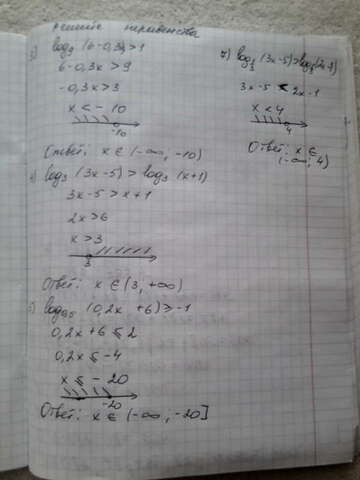 решите неравенства
3) log₃ (6-0,3x)>1
6-0,3x > 9
-0,3x > 3
x < - 10
-10
Ответ: x ∈ (-∞; -10)
4) log₃ (3x-5) > log₃ (x+1)
3x-5 > x+1
2x > 6
x > 3
3
Ответ: x ∈ (3, +∞)
5) log₀,₅ (0,2x +6) ≥ -1
0,2x+6 ≤ 2
0,2x ≤ -4
x ≤ - 20
-20
Ответ: x ∈ (-∞; -20]
3x-5 < 2x-1
x < 4
4
Ответ: x ∈
(-∞; 4)